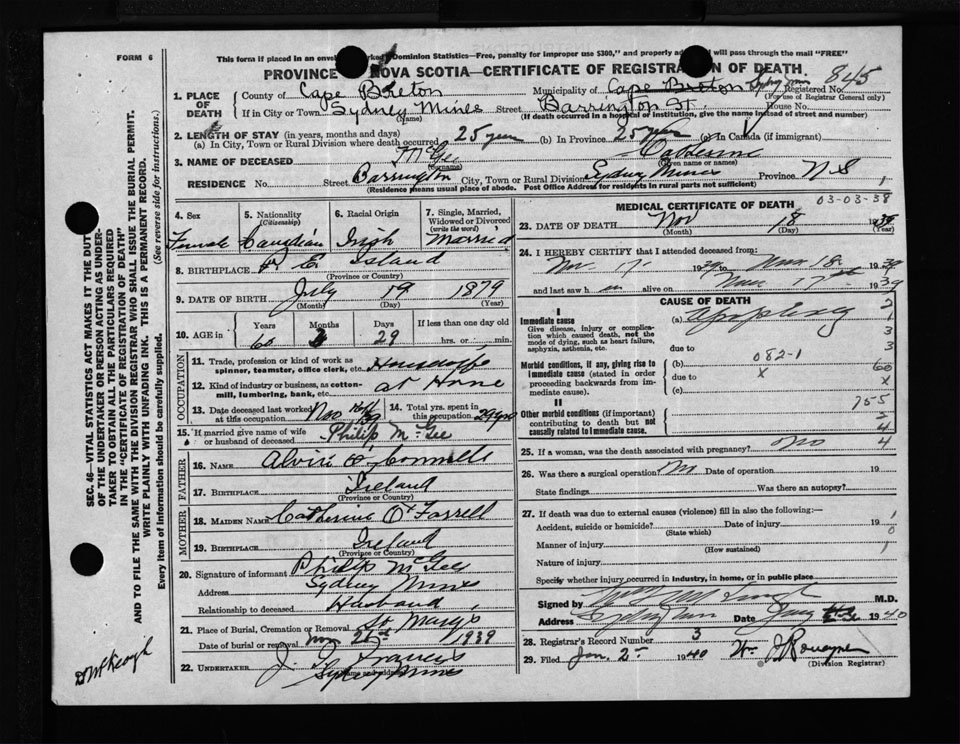 FORM 6
This form if placed in an envel Dominion Statistics—Free, penalty for improper use $300," and properly ad will pass through the mail "FREE"
PROVINCE NOVA SCOTIA—CERTIFICATE OF REGISTRATION OF DEATH
845
1. PLACE OF DEATH County of Cape Breton Municipality of Cape Breton Registered No.
(For use of Registrar General only)
If in City or Town Sydney Mines Street Barrington St. House No.
(Name) (If death occurred in a hospital or institution, give the name instead of street and number)
2. LENGTH OF STAY (in years, months and days)
(a) In City, Town or Rural Division where death occurred 25 years (b) In Province 25 years (c) In Canada (if immigrant)
3. NAME OF DECEASED McGee Catherine
(Surname) (Given name or names)
RESIDENCE No. Street Barrington City, Town or Rural Division Sydney Mines Province N S
(Residence means usual place of abode. Post Office Address for residents in rural parts not sufficient)
SEC. 46—VITAL STATISTICS ACT MAKES IT THE DUTY
OF THE UNDERTAKER OR PERSON ACTING AS UNDER-
TAKER TO OBTAIN ALL THE PARTICULARS REQUIRED
IN THE "CERTIFICATE OF REGISTRATION OF DEATH"
AND TO FILE THE SAME WITH THE DIVISION REGISTRAR WHO SHALL ISSUE THE BURIAL PERMIT.
WRITE PLAINLY WITH UNFADING INK. THIS IS A PERMANENT RECORD.
Every item of information should be carefully supplied. (See reverse side for instructions.)
4. Sex 5. Nationality (Citizenship) 6. Racial Origin 7. Single, Married, Widowed or Divorced (write the word)
Female Canadian Irish Married
8. BIRTHPLACE P E Island
(Province or Country)
9. DATE OF BIRTH July 19 1879
(Month) (Day) (Year)
10. AGE in Years Months Days If less than one day old
60 29 hrs. or min.
OCCUPATION
11. Trade, profession or kind of work as spinner, teamster, office clerk, etc. Housewife
12. Kind of industry or business, as cotton-mill, lumbering, bank, etc. at Home
13. Date deceased last worked at this occupation Nov 14. Total yrs. spent in this occupation
15. If married give name of wife or husband of deceased Philip McGee
FATHER
16. NAME O'Connell
17. BIRTHPLACE Ireland
(Province or Country)
MOTHER
18. MAIDEN NAME Catherine O'Farrell
19. BIRTHPLACE Ireland
(Province or Country)
20. Signature of informant Philip McGee
Address Sydney Mines
Relationship to deceased Husband
21. Place of Burial, Cremation or Removal St Marys
Date of burial or removal 1939
22. UNDERTAKER J. Francis
(Name and address)
Sydney Mines
03-03-38
MEDICAL CERTIFICATE OF DEATH
23. DATE OF DEATH Nov 18 1939
(Month) (Day) (Year)
24. I HEREBY CERTIFY that I attended deceased from:
Nov. 17 1939 to Nov 18 1939
and last saw h alive on Nov 17 1939
CAUSE OF DEATH
I
Immediate cause (a) Apoplexy
Give disease, injury or complication which caused death, not the mode of dying, such as heart failure, asphyxia, asthenia, etc.
due to
082-1
Morbid conditions, if any, giving rise to immediate cause (stated in order proceeding backwards from immediate cause). (b)
due to
(c)
II
Other morbid conditions (if important) contributing to death but not causally related to immediate cause.
25. If a woman, was the death associated with pregnancy? No
26. Was there a surgical operation? No Date of operation 19
State findings Was there an autopsy?
27. If death was due to external causes (violence) fill in also the following:—
Accident, suicide or homicide? Date of injury 19
(State which)
Manner of injury
(How sustained)
Nature of injury
Specify whether injury occurred in industry, in home, or in public place
Signed by M.D.
Address Date 1940
28. Registrar's Record Number 3
29. Filed Jan. 2 1940
(Division Registrar)